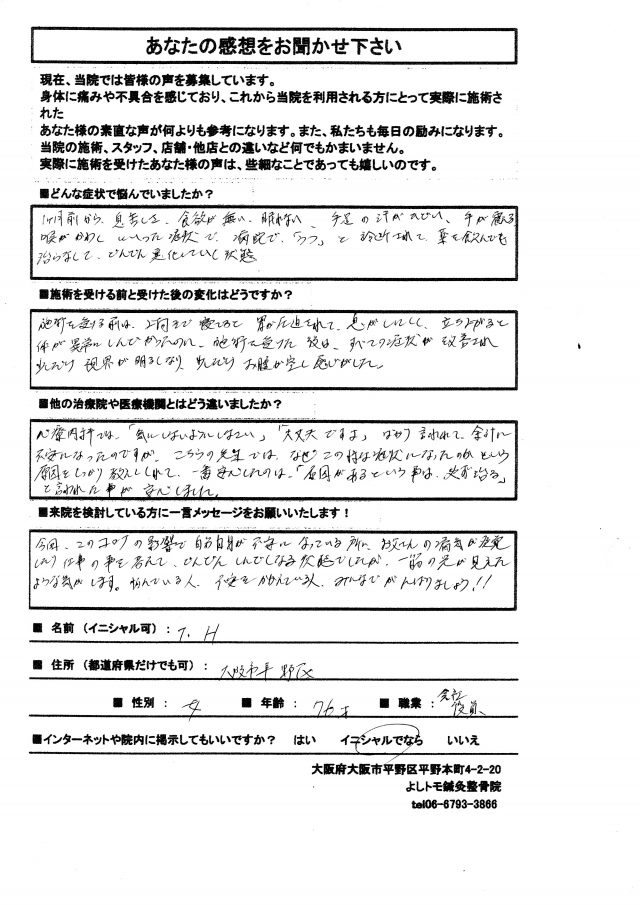 あなたの感想をお聞かせ下さい
現在、当院では皆様の声を募集しています。
身体に痛みや不具合を感じており、これから当院を利用される方にとって実際に施術さ
れた
あなた様の素直な声が何よりも参考になります。また、私たちも毎日の励みになります。
当院の施術、スタッフ、店舗・他店との違いなど何でもかまいません。
実際に施術を受けたあなた様の声は、些細なことであっても嬉しいのです。
■どんな症状で悩んでいましたか？
1ヶ月前から、息苦しさ、食欲が無い、眠れない、手足の汗がひどい、手が震える
喉がかわくといった症状で、病院で、「うつ」と診断されて、薬を飲んでも
治らなくて、どんどん悪化していく状態
■施術を受ける前と受けた後の変化はどうですか？
施術を受ける前は、上向きで寝てると胃が圧迫されて、息がしにくく、立ち上がると
体が異常にしんどかったのが、施術を受けた後は、すべての症状が改善され
れただけ視界が明るくなり お腹が空く感じがした。
■他の治療院や医療機関とはどう違いましたか？
心療内科では、「気にしないようにしなさい」「大丈夫ですよ」ばかり言われて、余計に
不安になったのですが、こちらの先生では、なぜこの様な症状になったのかという
原因をしっかり教えてくれて、一番安心したのは、「原因があるという事は、必ず治る」
と言われた事が安心しました。
■来院を検討している方に一言メッセージをお願いいたします！
今回、このコロナの影響で自分自身が不安になっている所に、お父さんの病気が発覚
したり仕事の事を考えて、どんどんしんどくなる状態でしたが、一筋の光が見えた
ような気がします。悩んでいる人、不安をかかえている人、みんなでがんばりましょう！！
■ 名前（イニシャル可）： T. H
■ 住所（都道府県だけでも可）： 大阪市平野区
■ 性別： 女 ■ 年齢： 才 ■ 職業： 会社役員
■インターネットや院内に掲示してもいいですか？ はい イニシャルでなら いいえ
大阪府大阪市平野区平野本町4-2-20
よしトモ鍼灸整骨院
tel06-6793-3866